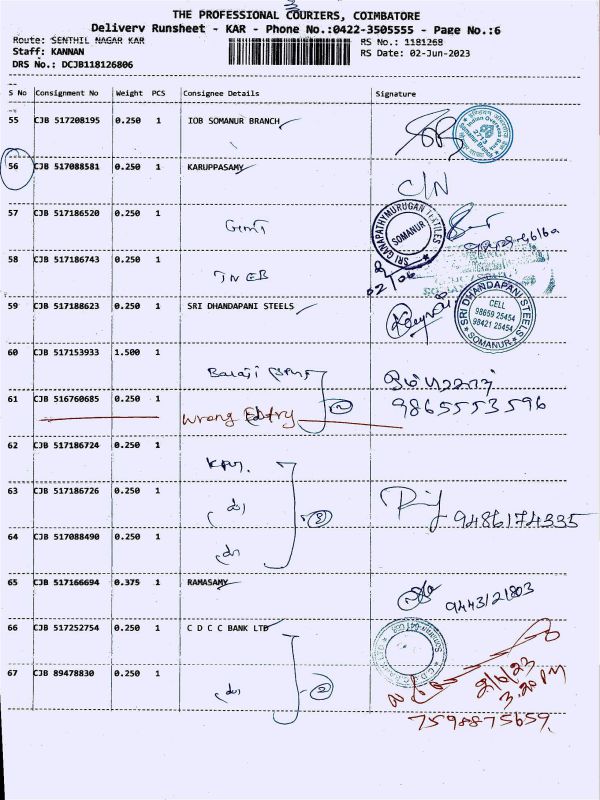 THE PROFESSIONAL COURIERS, COIMBATORE
Delivery Runsheet - KAR - Phone No.:0422-3505555 - Page No.:6
Route: SENTHIL NAGAR KAR
RS No.: 1181268
Staff: KANNAN
RS Date: 02-Jun-2023
DRS No.: DCJB118126806
S No Consignment No Weight PCS Consignee Details Signature
55 CJB 517208195 0.250 1 IOB SOMANUR BRANCH
Indian Overseas Bank
2713
56 CJB 517088581 0.250 1 KARUPPASAMY
C/N
57 CJB 517186520 0.250 1
SRI GANAPATHYMURUGAN TEXTILES
SOMANUR
58 CJB 517186743 0.250 1 TNEB
02/06
59 CJB 517188623 0.250 1 SRI DHANDAPANI STEELS
SRI DHANDAPANI STEELS
CELL
98659 25454
98421 25454
SOMANUR
60 CJB 517153933 1.500 1 Balaji
61 CJB 516760685 0.250 1 Wrong Entry
2
9865553596
62 CJB 517186724 0.250 1 KPM.
63 CJB 517186726 0.250 1
3
9486174335
64 CJB 517088490 0.250 1
65 CJB 517166694 0.375 1 RAMASAMY
9443121803
66 CJB 517252754 0.250 1 C D C C BANK LTD
67 CJB 89478830 0.250 1
2
2/6/23
3.20 PM
7598875659